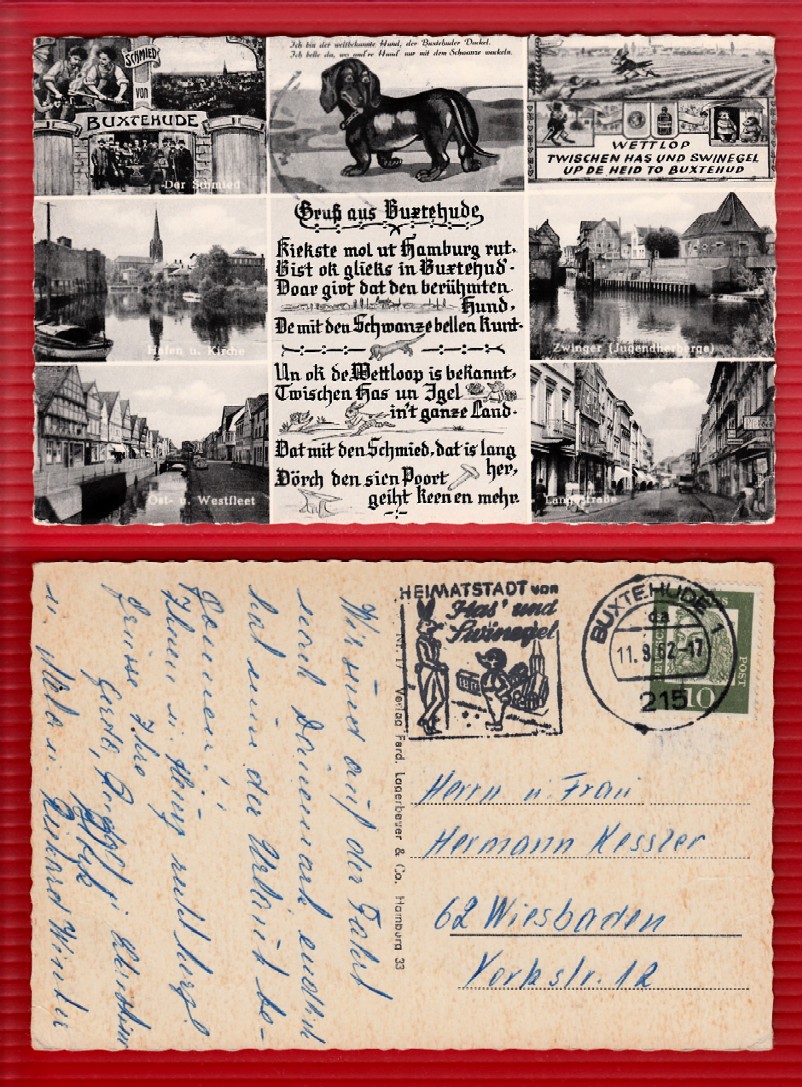 SCHMIED
von
BUXTEHUDE
Der Schmied
Ich bin der weltbekannte Hund, der Buxtehuder Dackel.
Ich belle da, wo and're Hund' nur mit dem Schwanze wackeln.
WETTLOP
TWISCHEN HAS UND SWINEGEL
UP DE HEID TO BUXTEHUD
Hafen u. Kirche
Gruß aus Buxtehude
Kiekste mol ut Hamburg rut,
Bist ok glieks in Buxtehud.
Door givt dat den berühmten
Hund,
De mit den Schwanze bellen kunt.
Un ok de Wettloop is bekannt,
Twischen Has un Igel
in't ganze Land.
Dat mit den Schmied, dat is lang
her,
Dörch den sien Poort
geiht keen en mehr.
Zwinger (Jugendherberge)
Ost- u. Westfleet
Langestraße
HEIMATSTADT von
Has' und
Swinegel
BUXTEHUDE 1
da
11.9.62-17
215
DEUTSCHE
POST
10
Nr. 17 Verlag Ferd. Lagerbeyer & Co. Hamburg 33
Wir sind auf der Fahrt
nach Dänemark endlich
hat nun der Urlaub be-
gonnen!
Ihnen u. Henny recht herzl.
Grüsse Ihre
Gerda, u. Christian
u. Richard Winter
Herrn u. Frau
Hermann Kessler
62 Wiesbaden
Yorkstr. 12